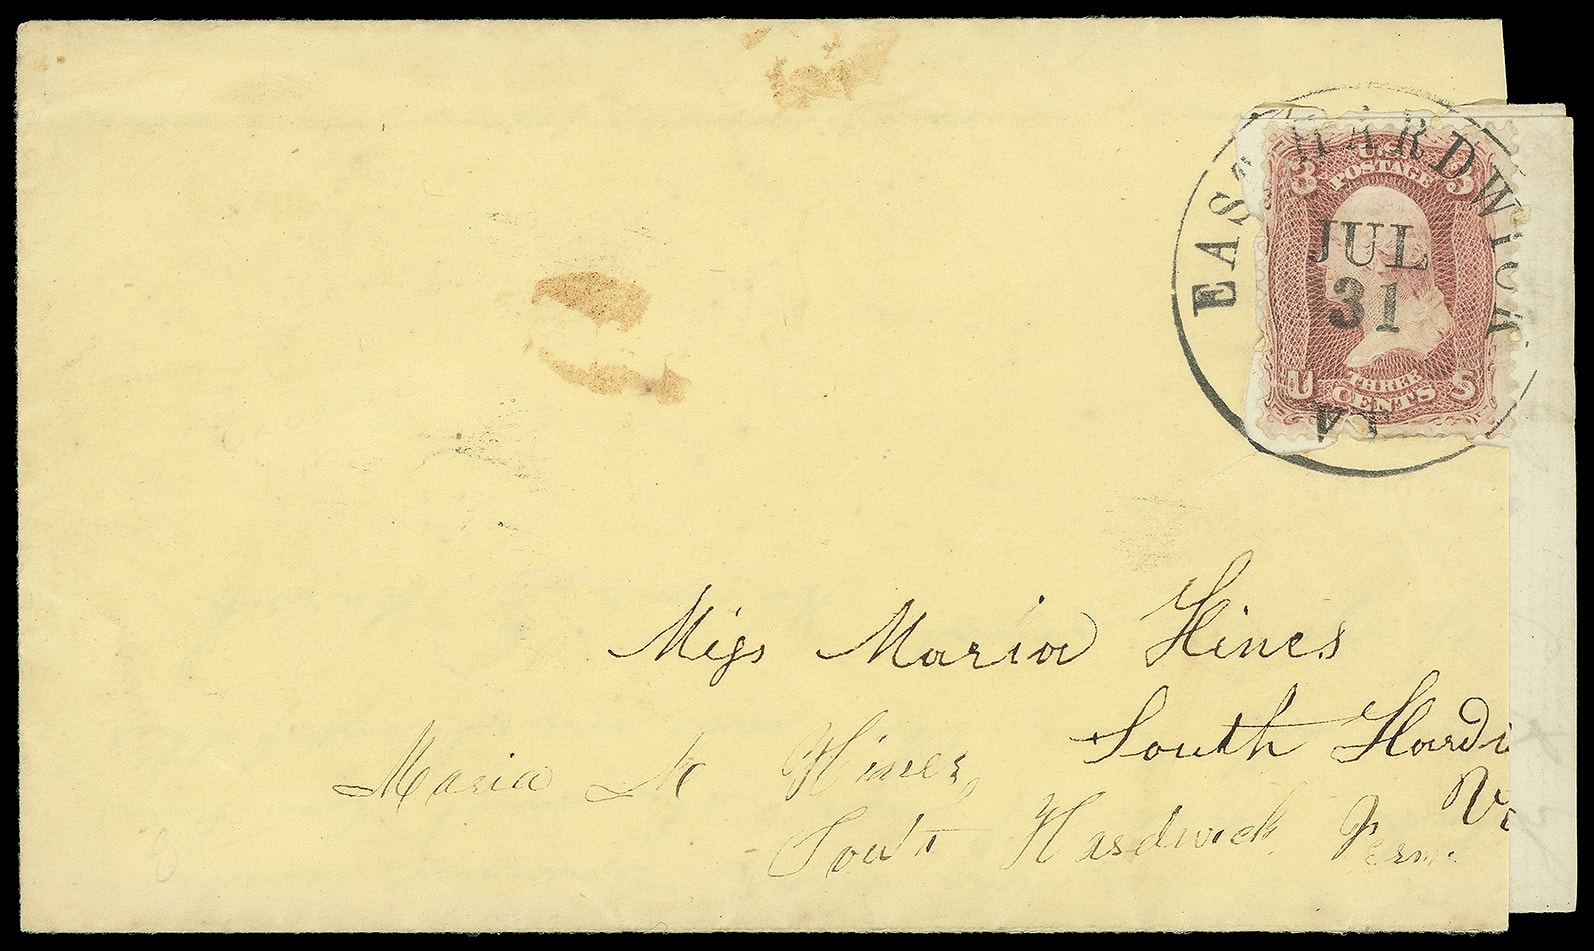 EAST HARDWICK
JUL
31
Vt
U.S.
POSTAGE
3 3
THREE
CENTS
U S
Miss Maria Hines
South Hardwi
Maria Hines,
South Hardwick